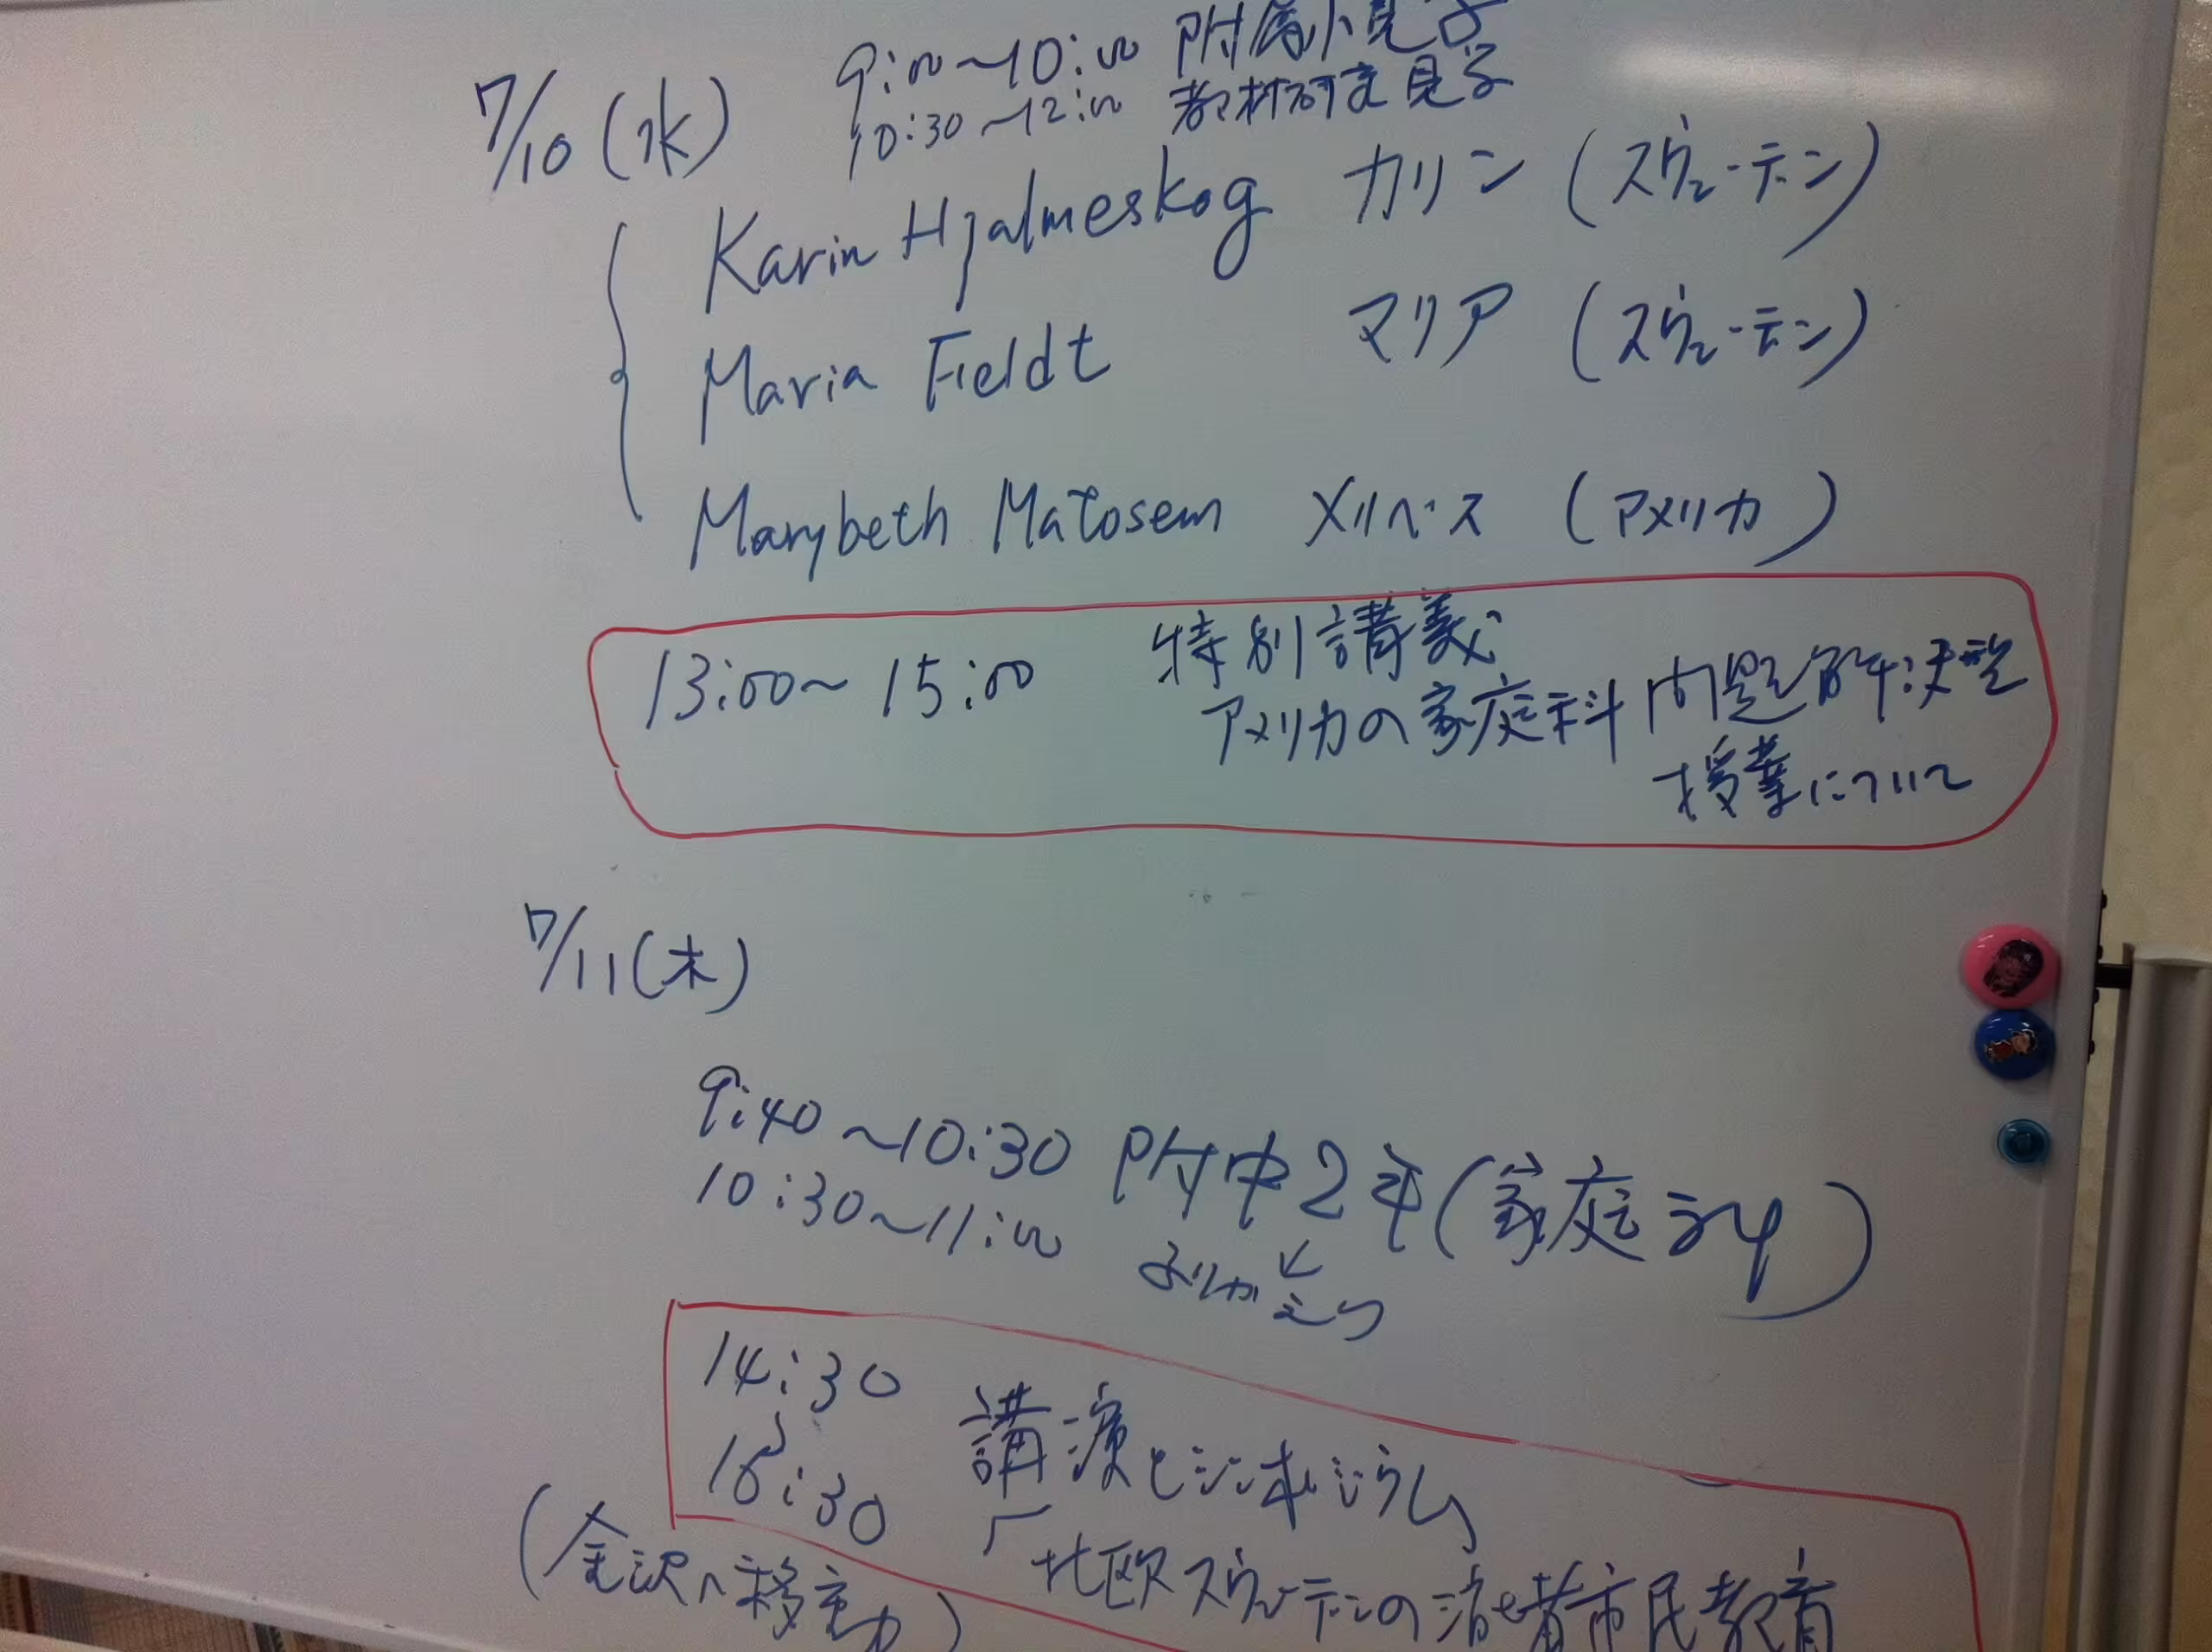 7/10(水)
9:00〜10:00 附属小見学
10:30〜12:00 教材研究見学
Karin Hjalmeskog カリン (スウェーデン)
Maria Fieldt マリア (スウェーデン)
Marybeth Matosem メリベス (アメリカ)
13:00〜15:00 特別講義
アメリカの家庭科問題解決型
授業について
7/11(木)
9:40〜10:30 附中2年(家庭科)
10:30〜11:00 ふりかえり
14:30
〜
16:30 講演とシンポジウム
「北欧スウェーデンの消費者市民教育
(金沢へ移動)